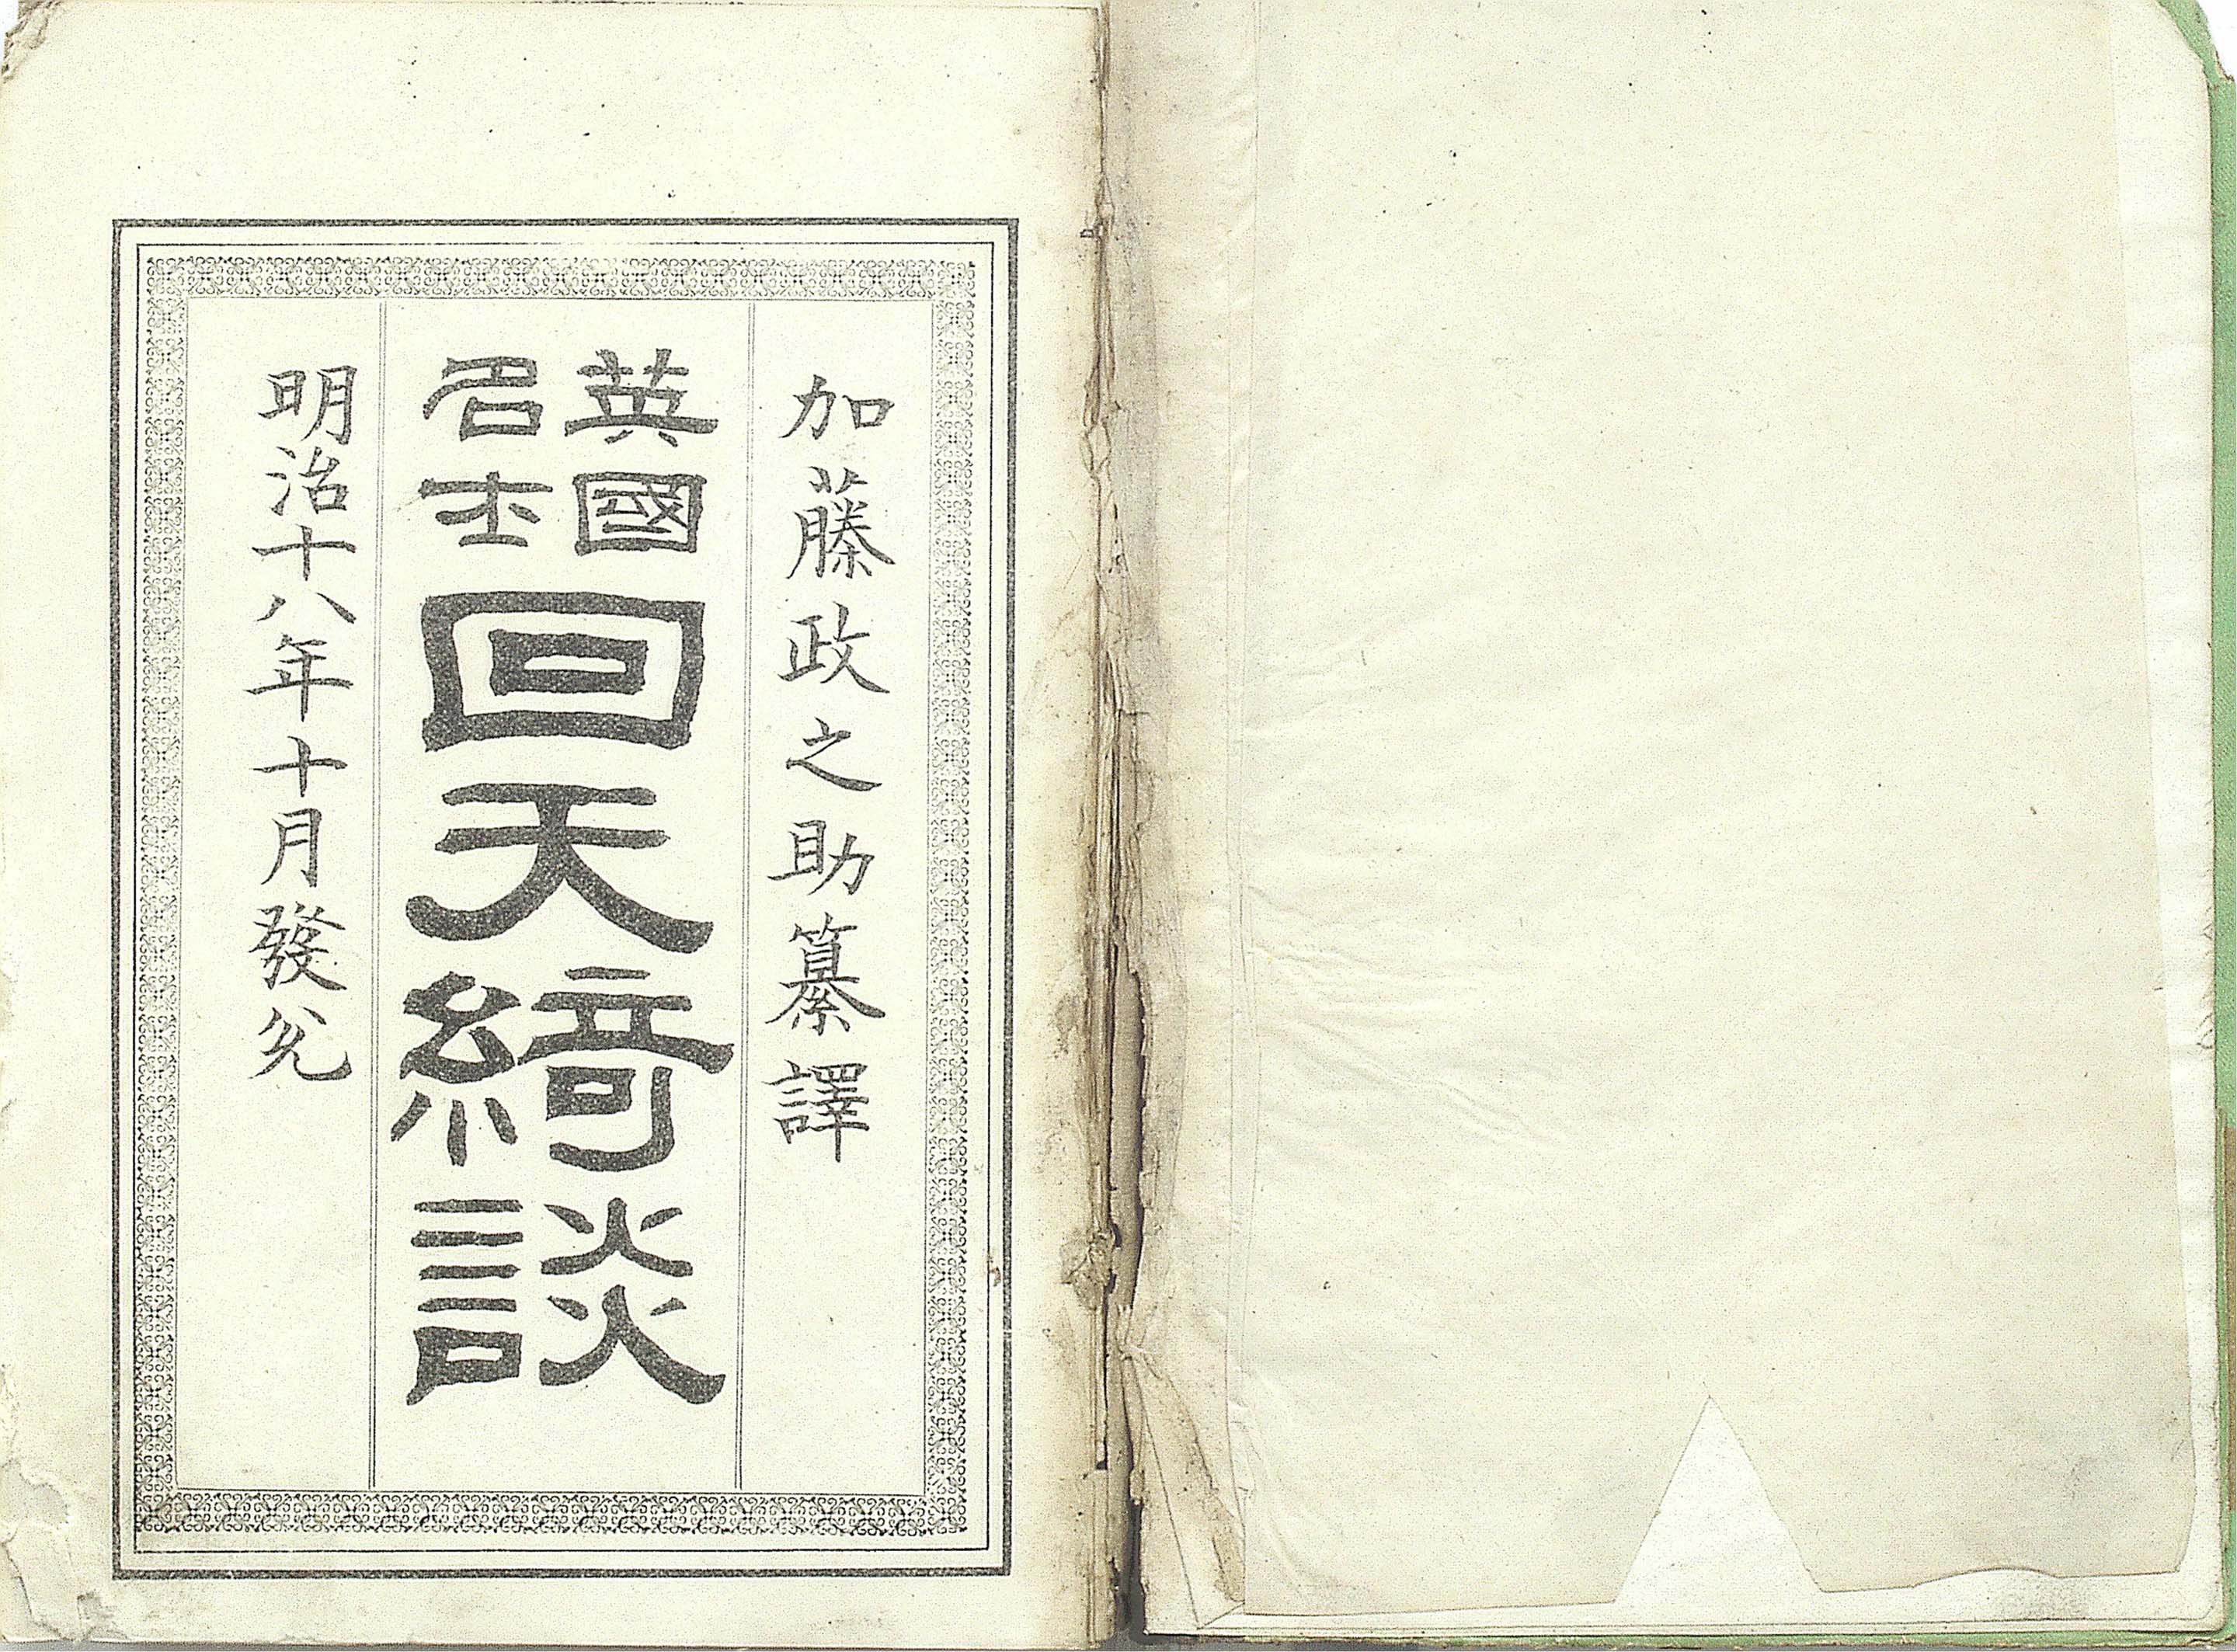 加藤政之助纂譯
英國名士回天綺談
明治十八年十月發兌